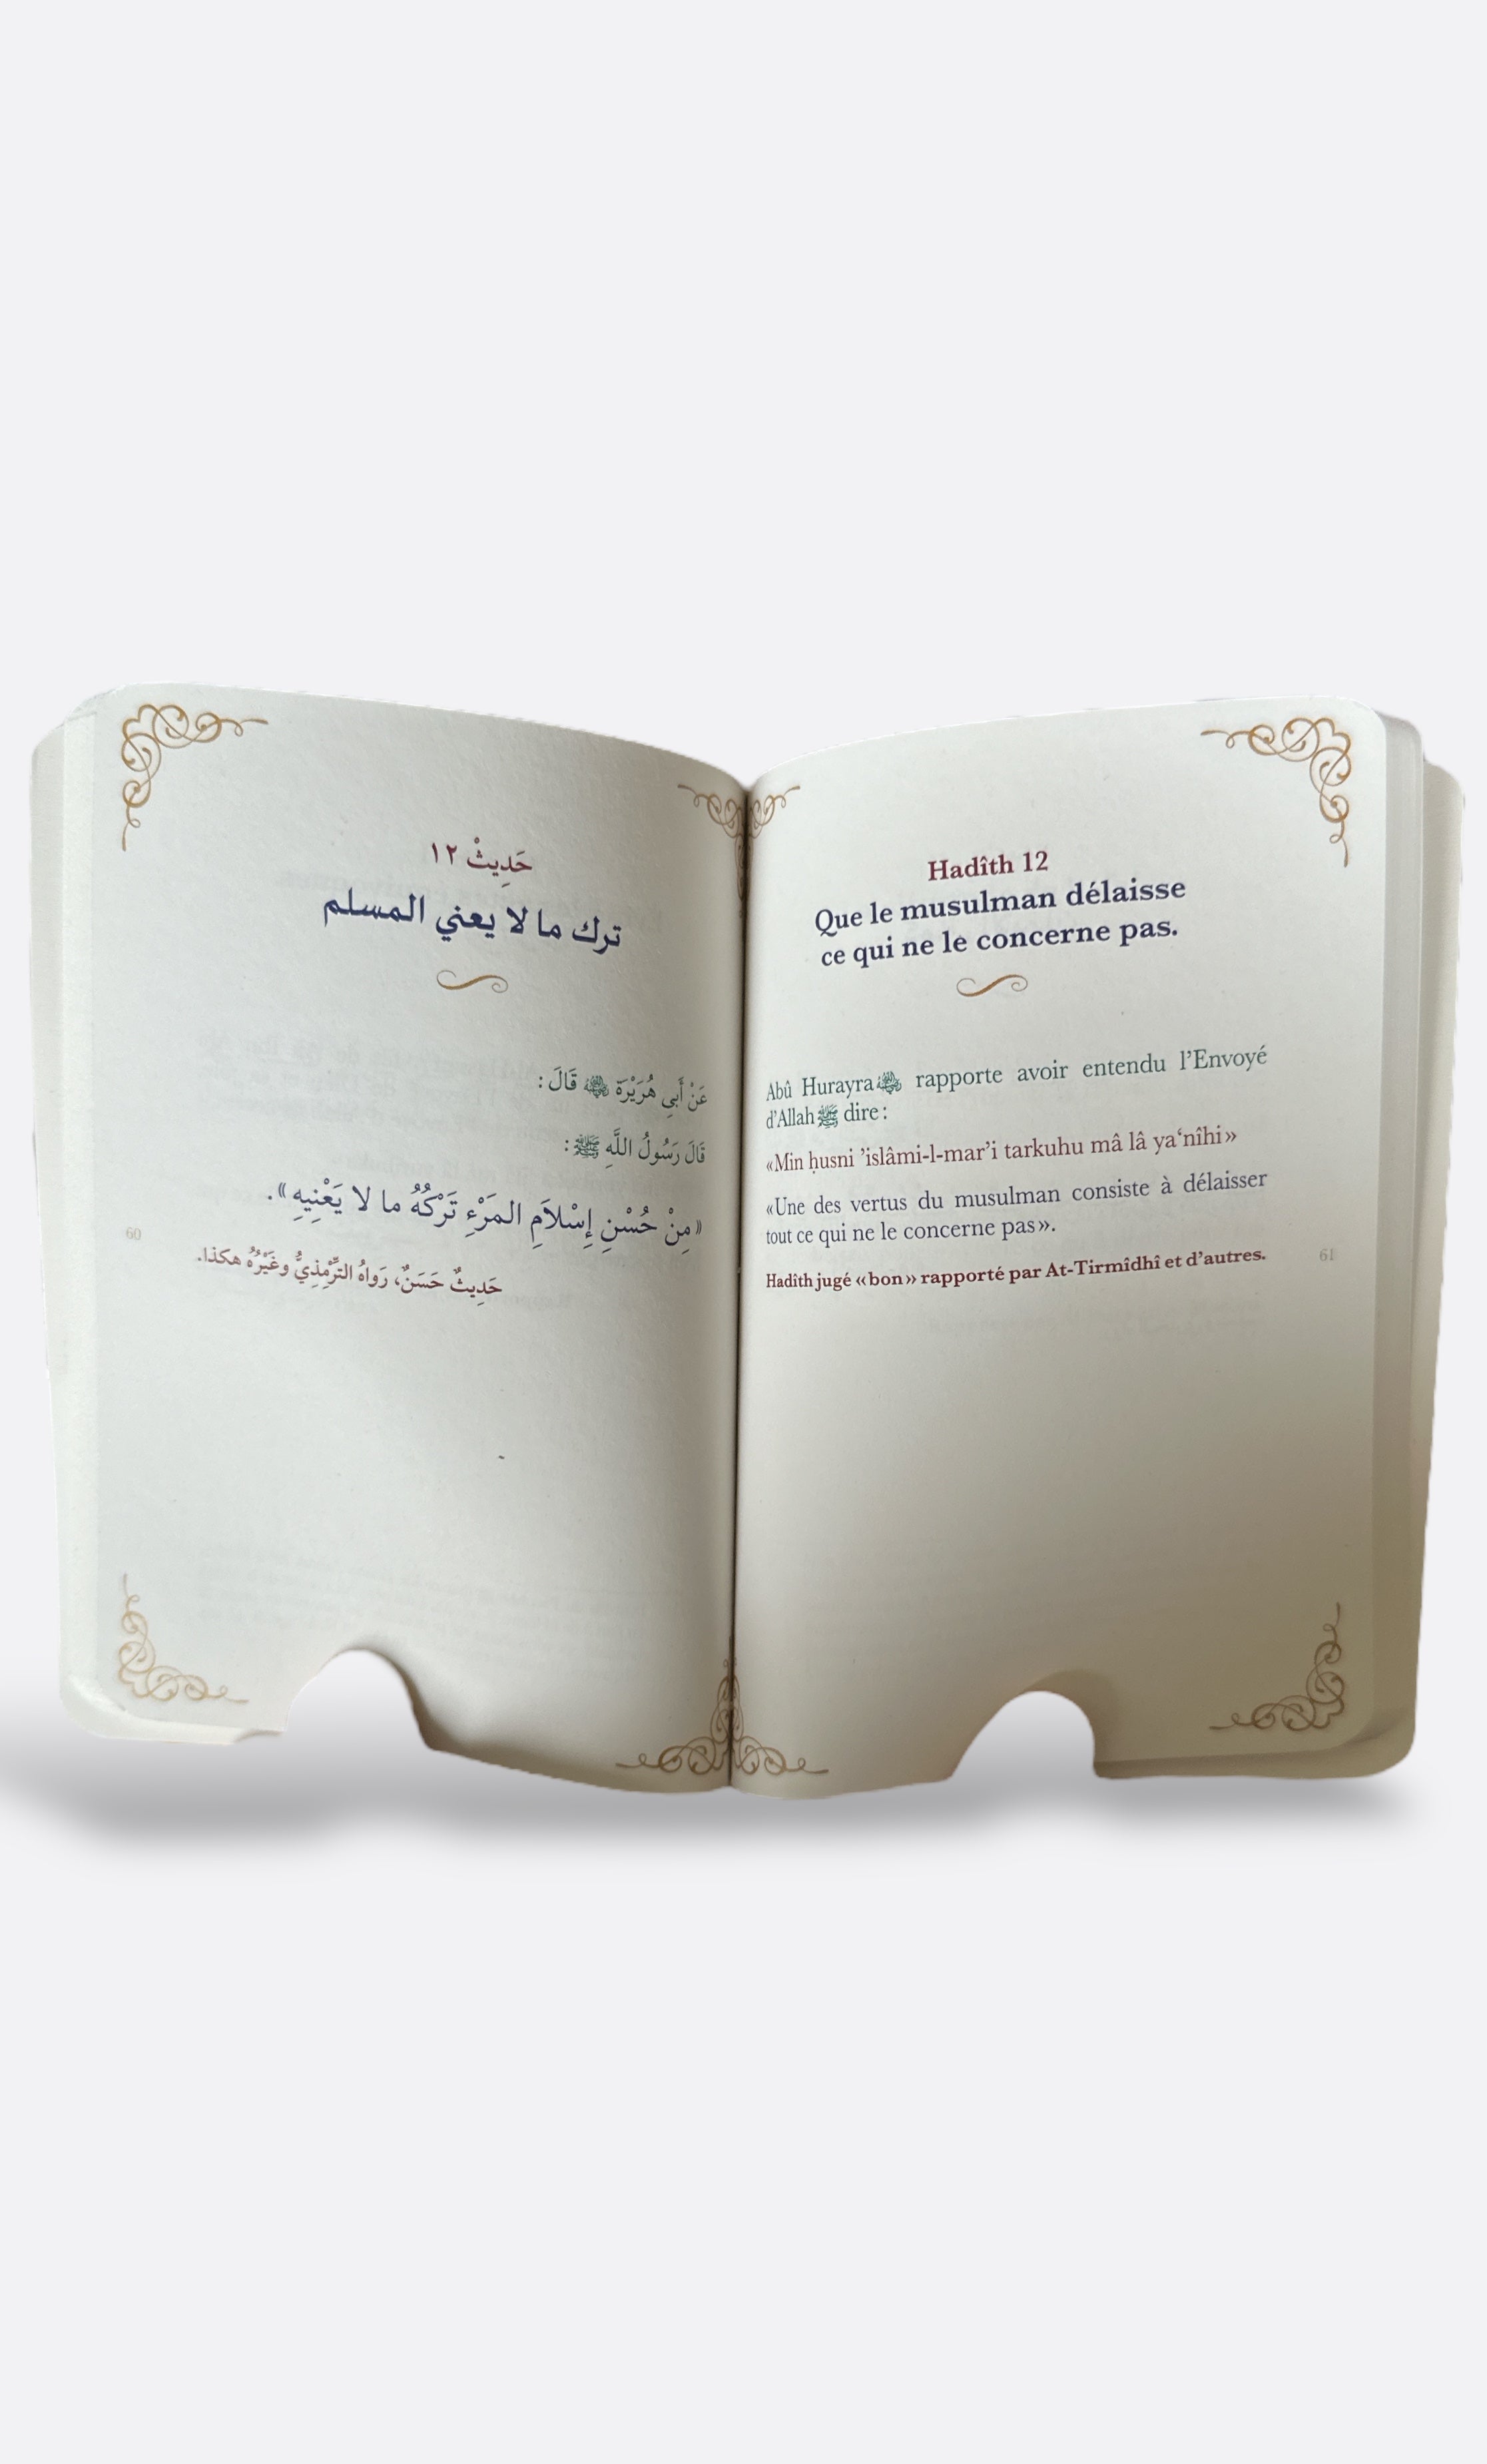 حَدِيثْ ١٢
ترك ما لا يعني المسلم
عَنْ أَبِي هُرَيْرَةَ ﷺ قَالَ :
قَالَ رَسُولُ اللَّهِ ﷺ :
«مِنْ حُسْنِ إِسْلاَمِ المَرْءِ تَرْكُهُ ما لا يَعْنِيهِ».
حَدِيثٌ حَسَنٌ، رَواهُ التِّرْمِذِيُّ وغَيْرُهُ هكذا.
60
Hadîth 12
Que le musulman délaisse
ce qui ne le concerne pas.
Abû Hurayra rapporte avoir entendu l’Envoyé
d’Allah ﷺ dire :
«Min ḥusni ’islâmi-l-mar’i tarkuhu mâ lâ ya‘nîhi»
«Une des vertus du musulman consiste à délaisser
tout ce qui ne le concerne pas».
Hadîth jugé «bon» rapporté par At-Tirmîdhî et d’autres.
61